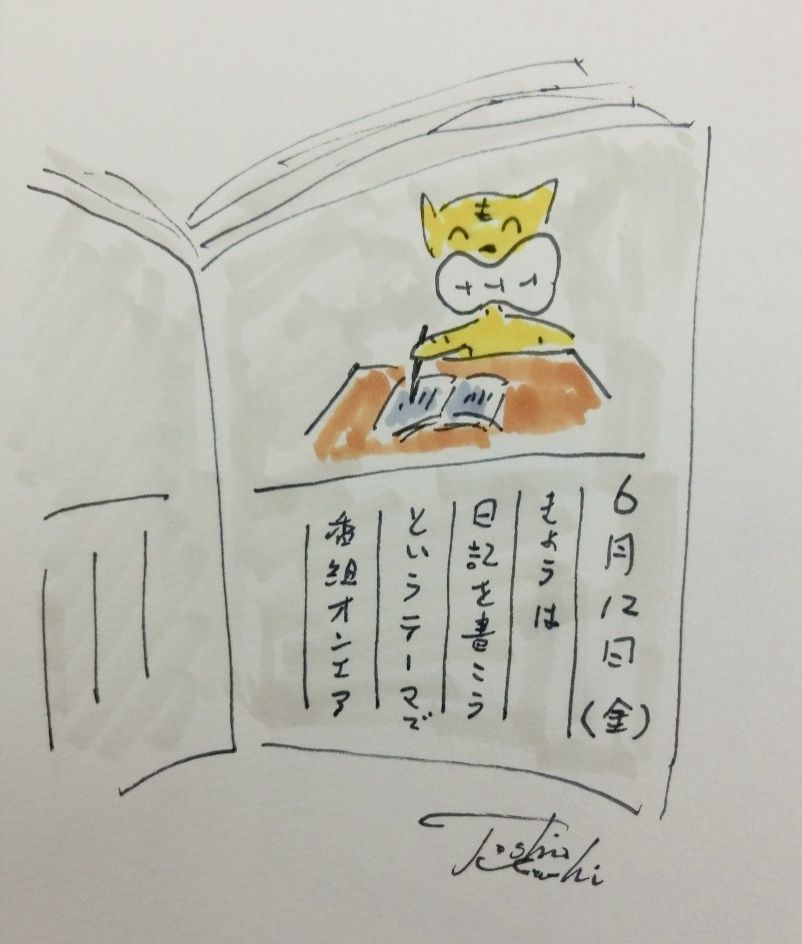 6月12日(金)
きょうは
日記を書こう
というテーマで
番組オンエア
Toshio